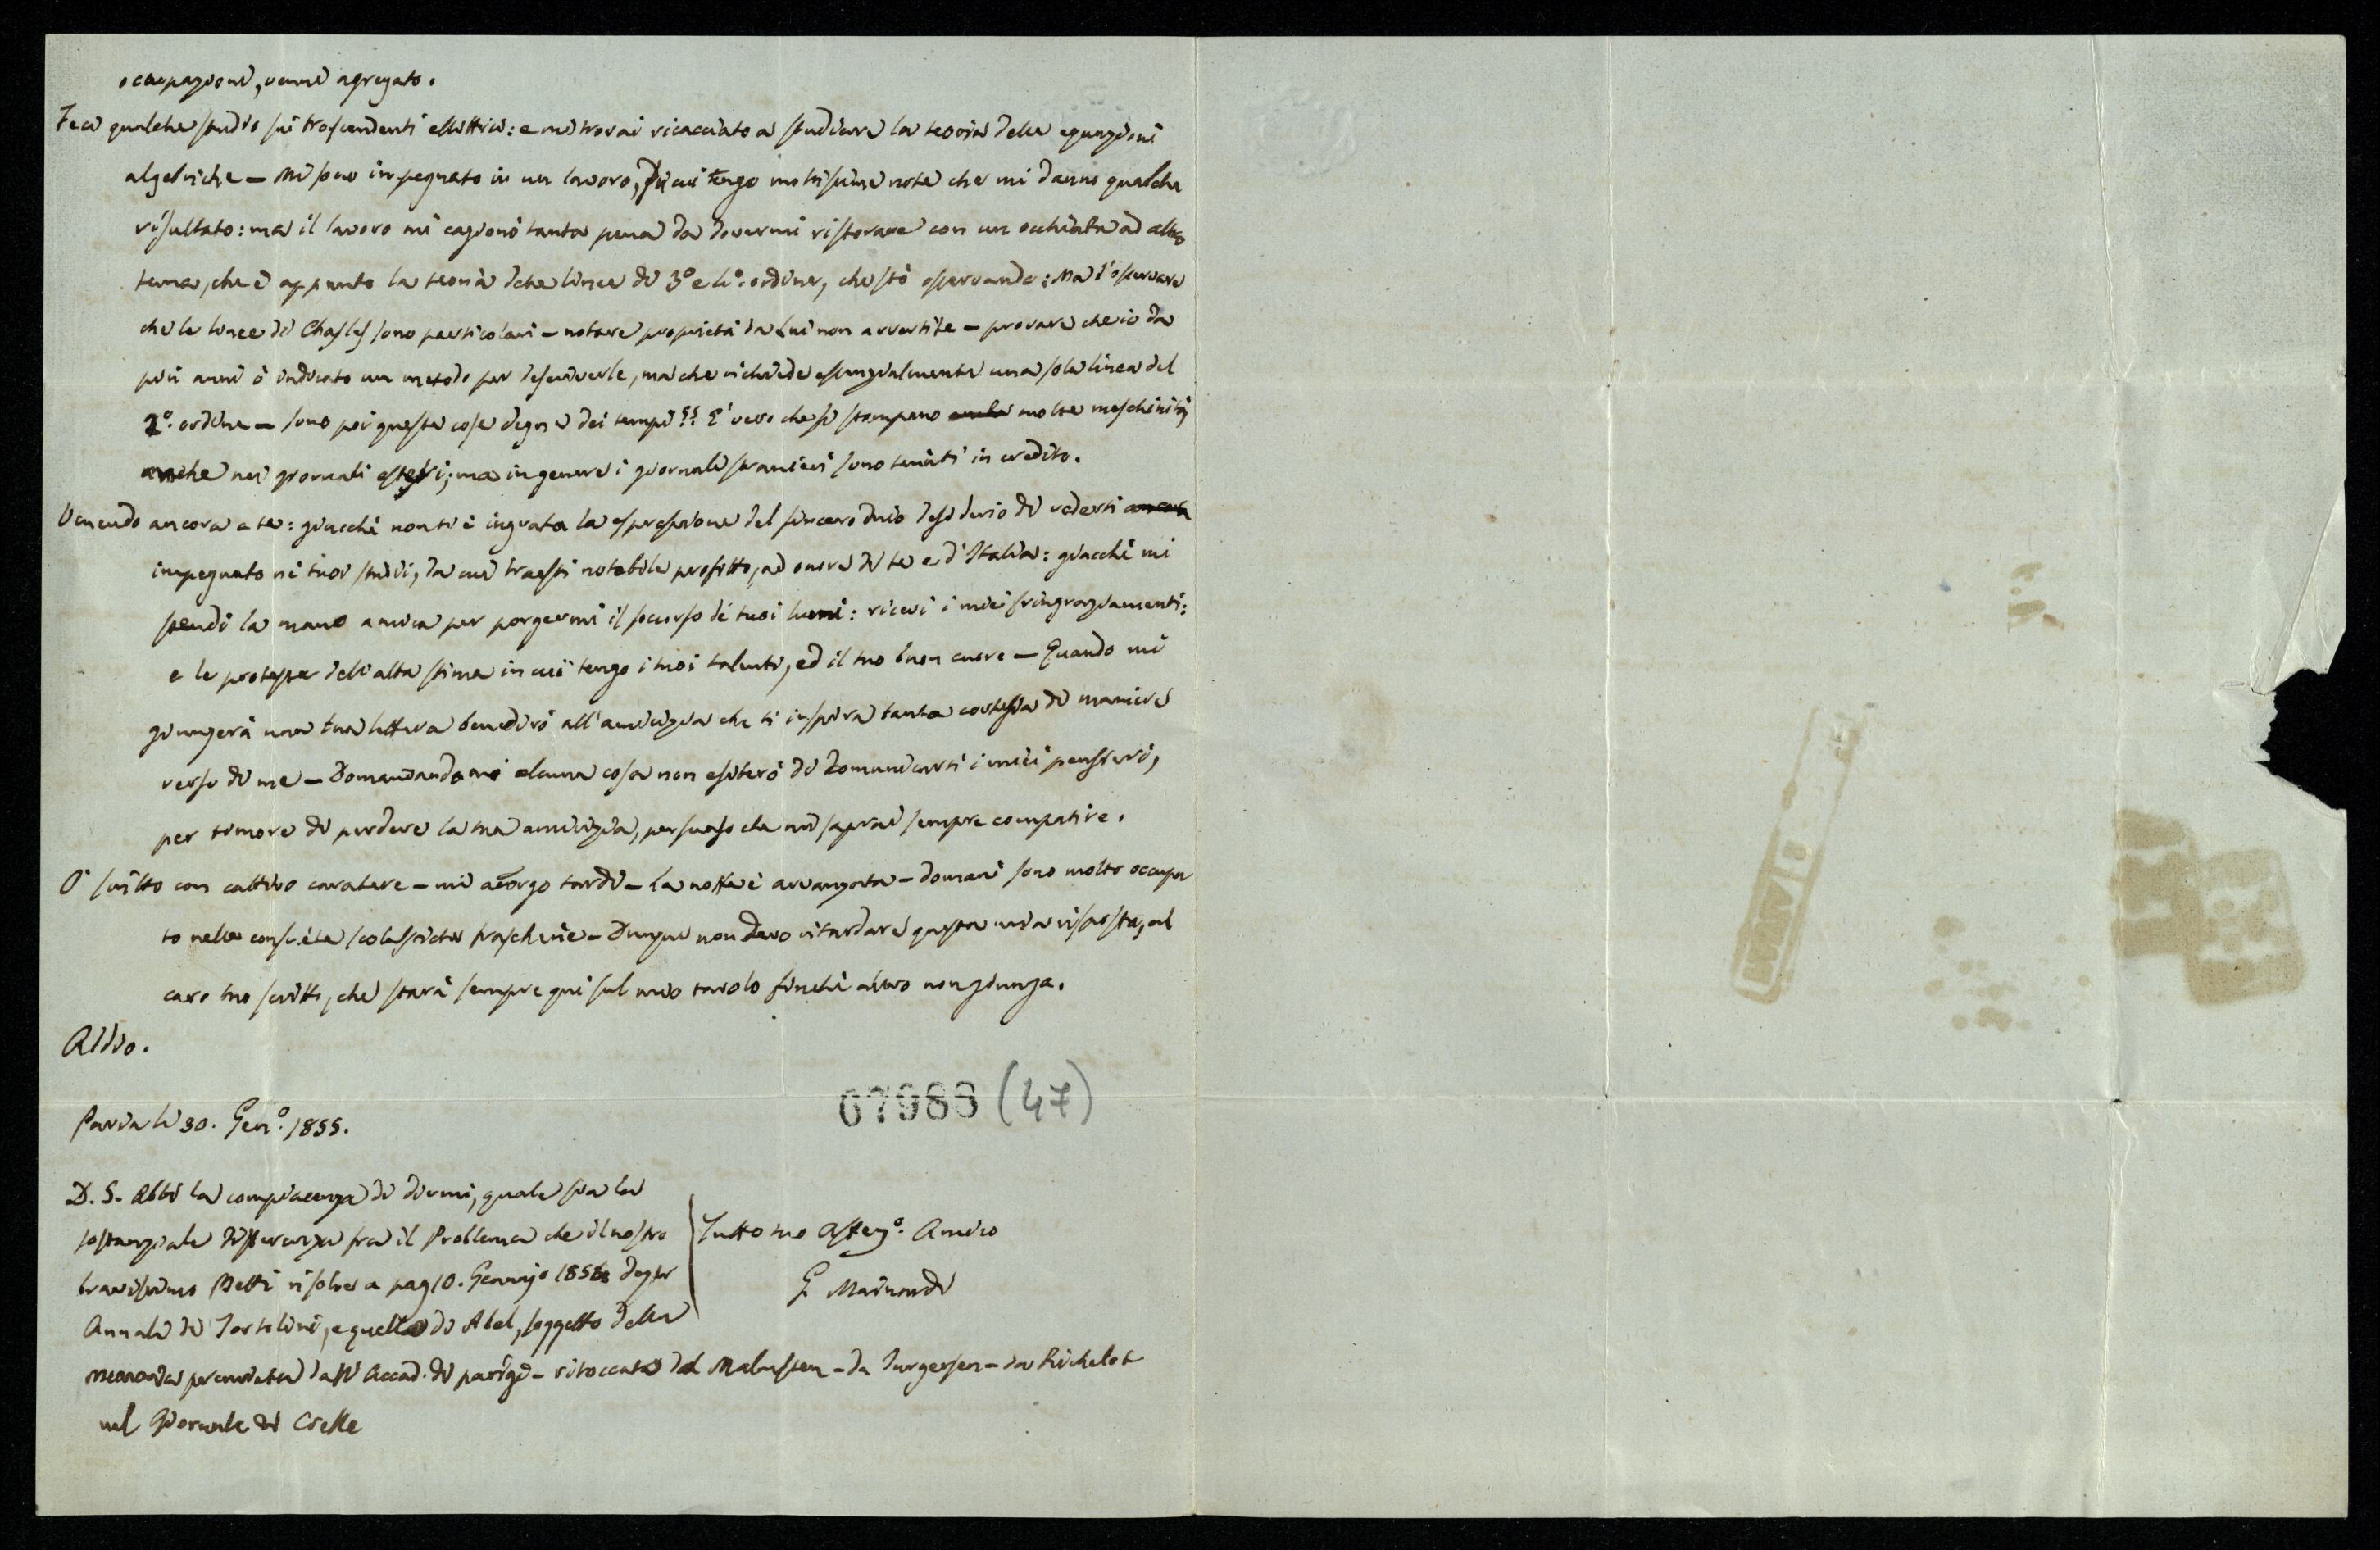 occupazioni, venni agregato.
Feci qualche studio sui trascendenti ellittici: e mi trovai ricacciato a studiare la teoria delle equazioni
algebriche – Mi sono impegnato in un lavoro, di cui tengo moltissime note che mi danno qualche
risultato: ma il lavoro mi cagionò tanta pena da dovermi ristorare con un occhiata ad altro
tema, che è appunto la teoria delle linee di 3º e 4º. ordine, che stò osservando: Ma l'osservare
che le linee di Chasles sono particolari – notare proprietà da lui non avvertite – provare che io da
più anni ò indicato un metodo per descriverle, ma che richiede essenzialmente una sola linea del
2º. ordine – sono poi queste cose degne dei tempi?? E' vero che si stampano molte meschinità
anche nei giornali esteri; ma in genere i giornali stranieri sono tenuti in credito.
Venendo ancora a te: giacchè non ti è ingrata la espressione del sincero mio desiderio di vederti ancora
impegnato ne' tuoi studii, da cui traesti notabile profitto, ad onore di te e d'Italia: giacchè mi
stendi la mano amica per porgermi il soccorso de' tuoi lumi: ricevi i miei ringraziamenti:
e le proteste dell'alta stima in cui tengo i tuoi talenti, ed il tuo buon cuore – Quando mi
giungerà una tua lettera benedirò all'amicizia che ti inspira tanta cortesia di maniere
verso di me – Domandandomi alcuna cosa non esiterò di comunicarti i miei pensieri,
per timore di perdere la tua amicizia, persuaso che mi saprai sempre compatire.
O' scritto con cattivo caratere – mi accorgo tardi – la notte è avanzata – domani sono molto occupa
to nelle consuete scolastiche frascherie – Dunque non devo ritardare questa mia risposta, al
caro tuo scritto, che starà sempre qui sul mio tavolo finchè altro non giunga.
Addio.
67983 (47)
Pavia li 30. Genº. 1855.
D. S. Abbi la compiacenza di dirmi, quale sia la
sostanziale differenza fra il Problema che il nostro
bravissimo Betti risolve a pag 10. Gennajo degli
Annali di Tortolini, e quello di Abel, soggetto della
memoria premiata dall' Accad. di parigi – ritoccata da Malmsten – da Jurgensen – da Richelot
nel Giornale di Crelle
Tutto tuo Affezº. Amico
G. Mainardi